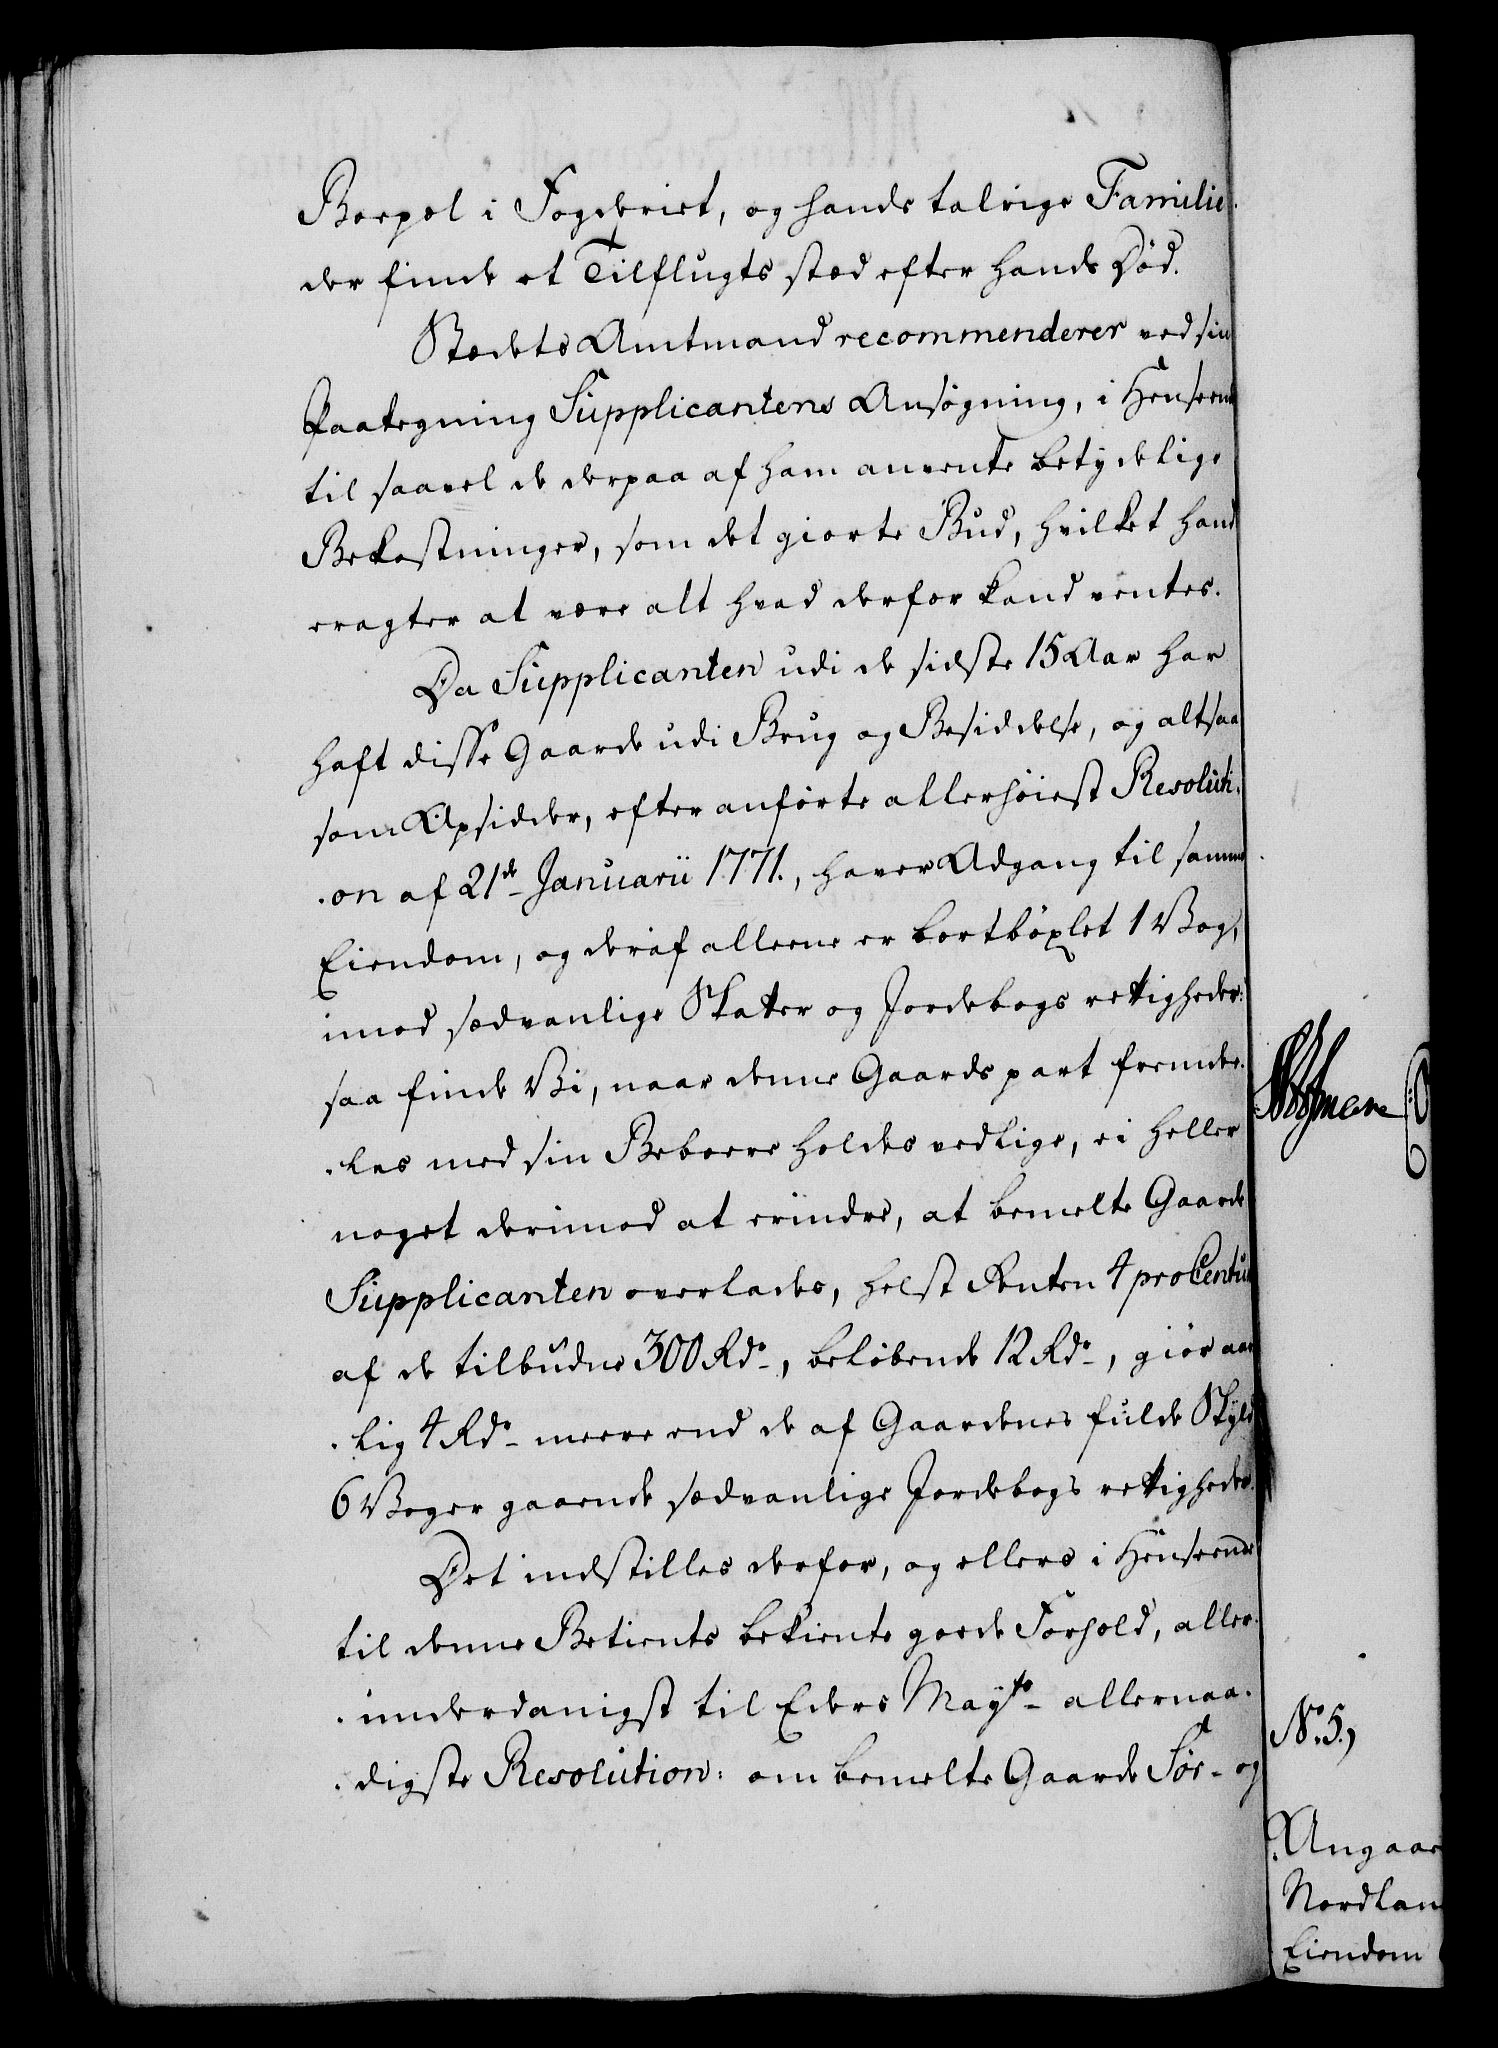 Boepæl i Fogderiet, og hands talrige Familie
der finde et Tilflugts stæd efter hands Død.
Stædets Amtmand recommenderer ved sin
Paategning Supplicantens Ansøgning, i Henseende
til saavel de derpaa af ham anvente betydelige
Bekostninger, som det giorte Bud, hvilket hand
eragter at være alt hvad derfor kand ventes.
Da Supplicanten udi de sidste 15 Aar har
haft disse Gaarde udi Brug og Besiddelse, og altsaa
som Opsidder, efter anførte allerhøiest Resoluti-
-on af 21de Januarii 1771., haver Adgang til samme
Eiendom, og deraf alleene er bortbøxlet 1 Vog,
imod sædvanlige Skatter og Jordebogs rettigheder:
saa finde Vi, naar denne Gaards part fremde-
-les med sin Beboere holdes vedlige, ei heller
noget derimod at erindre, at bemelte Gaarde
Supplicanten overlades, helst Renten 4 proCentum
af de tilbudne 300 Rdr, beløbende 12 Rdr, giør aar-
-lig 4 Rdr meere end de af Gaardenes fulde Skyld
6 Voger gaaende sædvanlige Jordebogs rettigheder.
Det indstilles derfor, og ellers i Henseende
til denne Betients bekiente goede Forhold, aller-
-underdanigst til Eders Mayts allernaa-
-digste Resolution: om bemelte Gaarde Sør- og
No 5,
Angaar
Nordlan
Eiendom